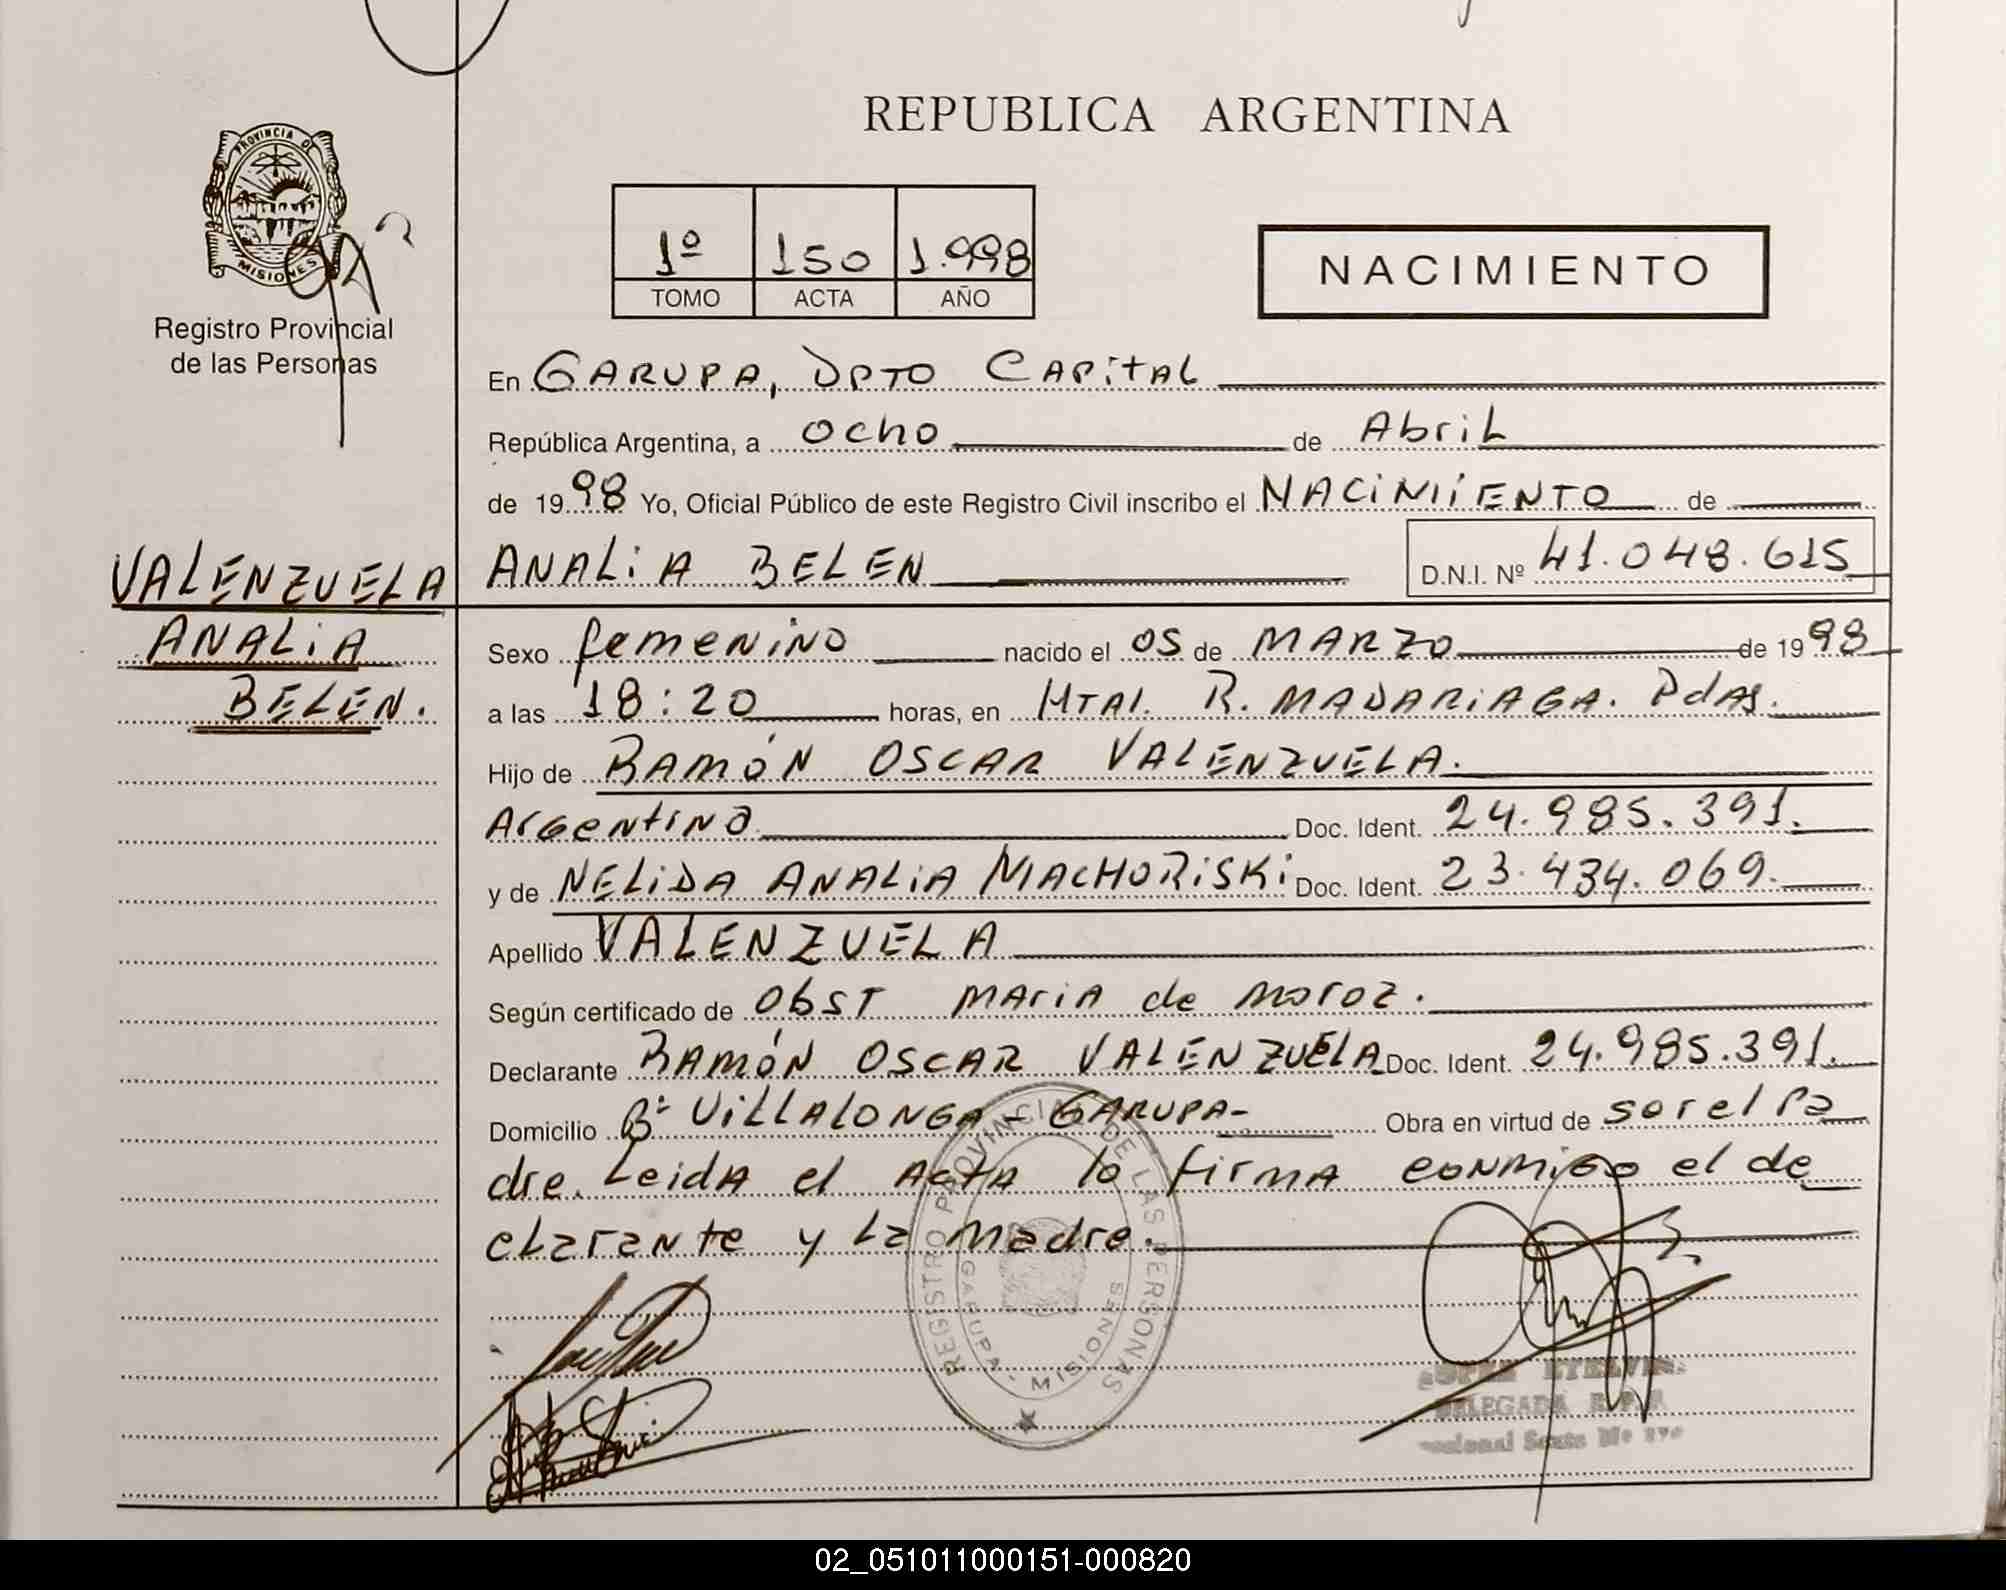 REPUBLICA ARGENTINA
PROVINCIA DE
MISIONES
Registro Provincial
de las Personas
1º 150 1.998
TOMO ACTA AÑO
NACIMIENTO
En GARUPA, DPTO CAPITAL
República Argentina, a ocho de Abril
de 1998 Yo, Oficial Público de este Registro Civil inscribo el NACIMIENTO de
ANALIA BELEN D.N.I. Nº 41.048.615
VALENZUELA
ANALIA
BELEN.
Sexo femenino nacido el 05 de MARZO de 1998
a las 18:20 horas, en HTAL. R. MADARIAGA. Pdas.
Hijo de RAMÓN OSCAR VALENZUELA.
Argentino Doc. Ident. 24.985.391.
y de NELIDA ANALIA MACHORISKI Doc. Ident. 23.434.069.
Apellido VALENZUELA
Según certificado de Obst MARIA de Moroz.
Declarante RAMÓN OSCAR VALENZUELA Doc. Ident. 24.985.391.
Domicilio Bº VILLALONGA - GARUPA- Obra en virtud de ser el Pa
dre. Leida el ACTA lo firma conmigo el de
clarante y la madre.
REGISTRO PROVINCIAL DE LAS PERSONAS
GARUPA - MISIONES
DELEGADA
02_051011000151-000820